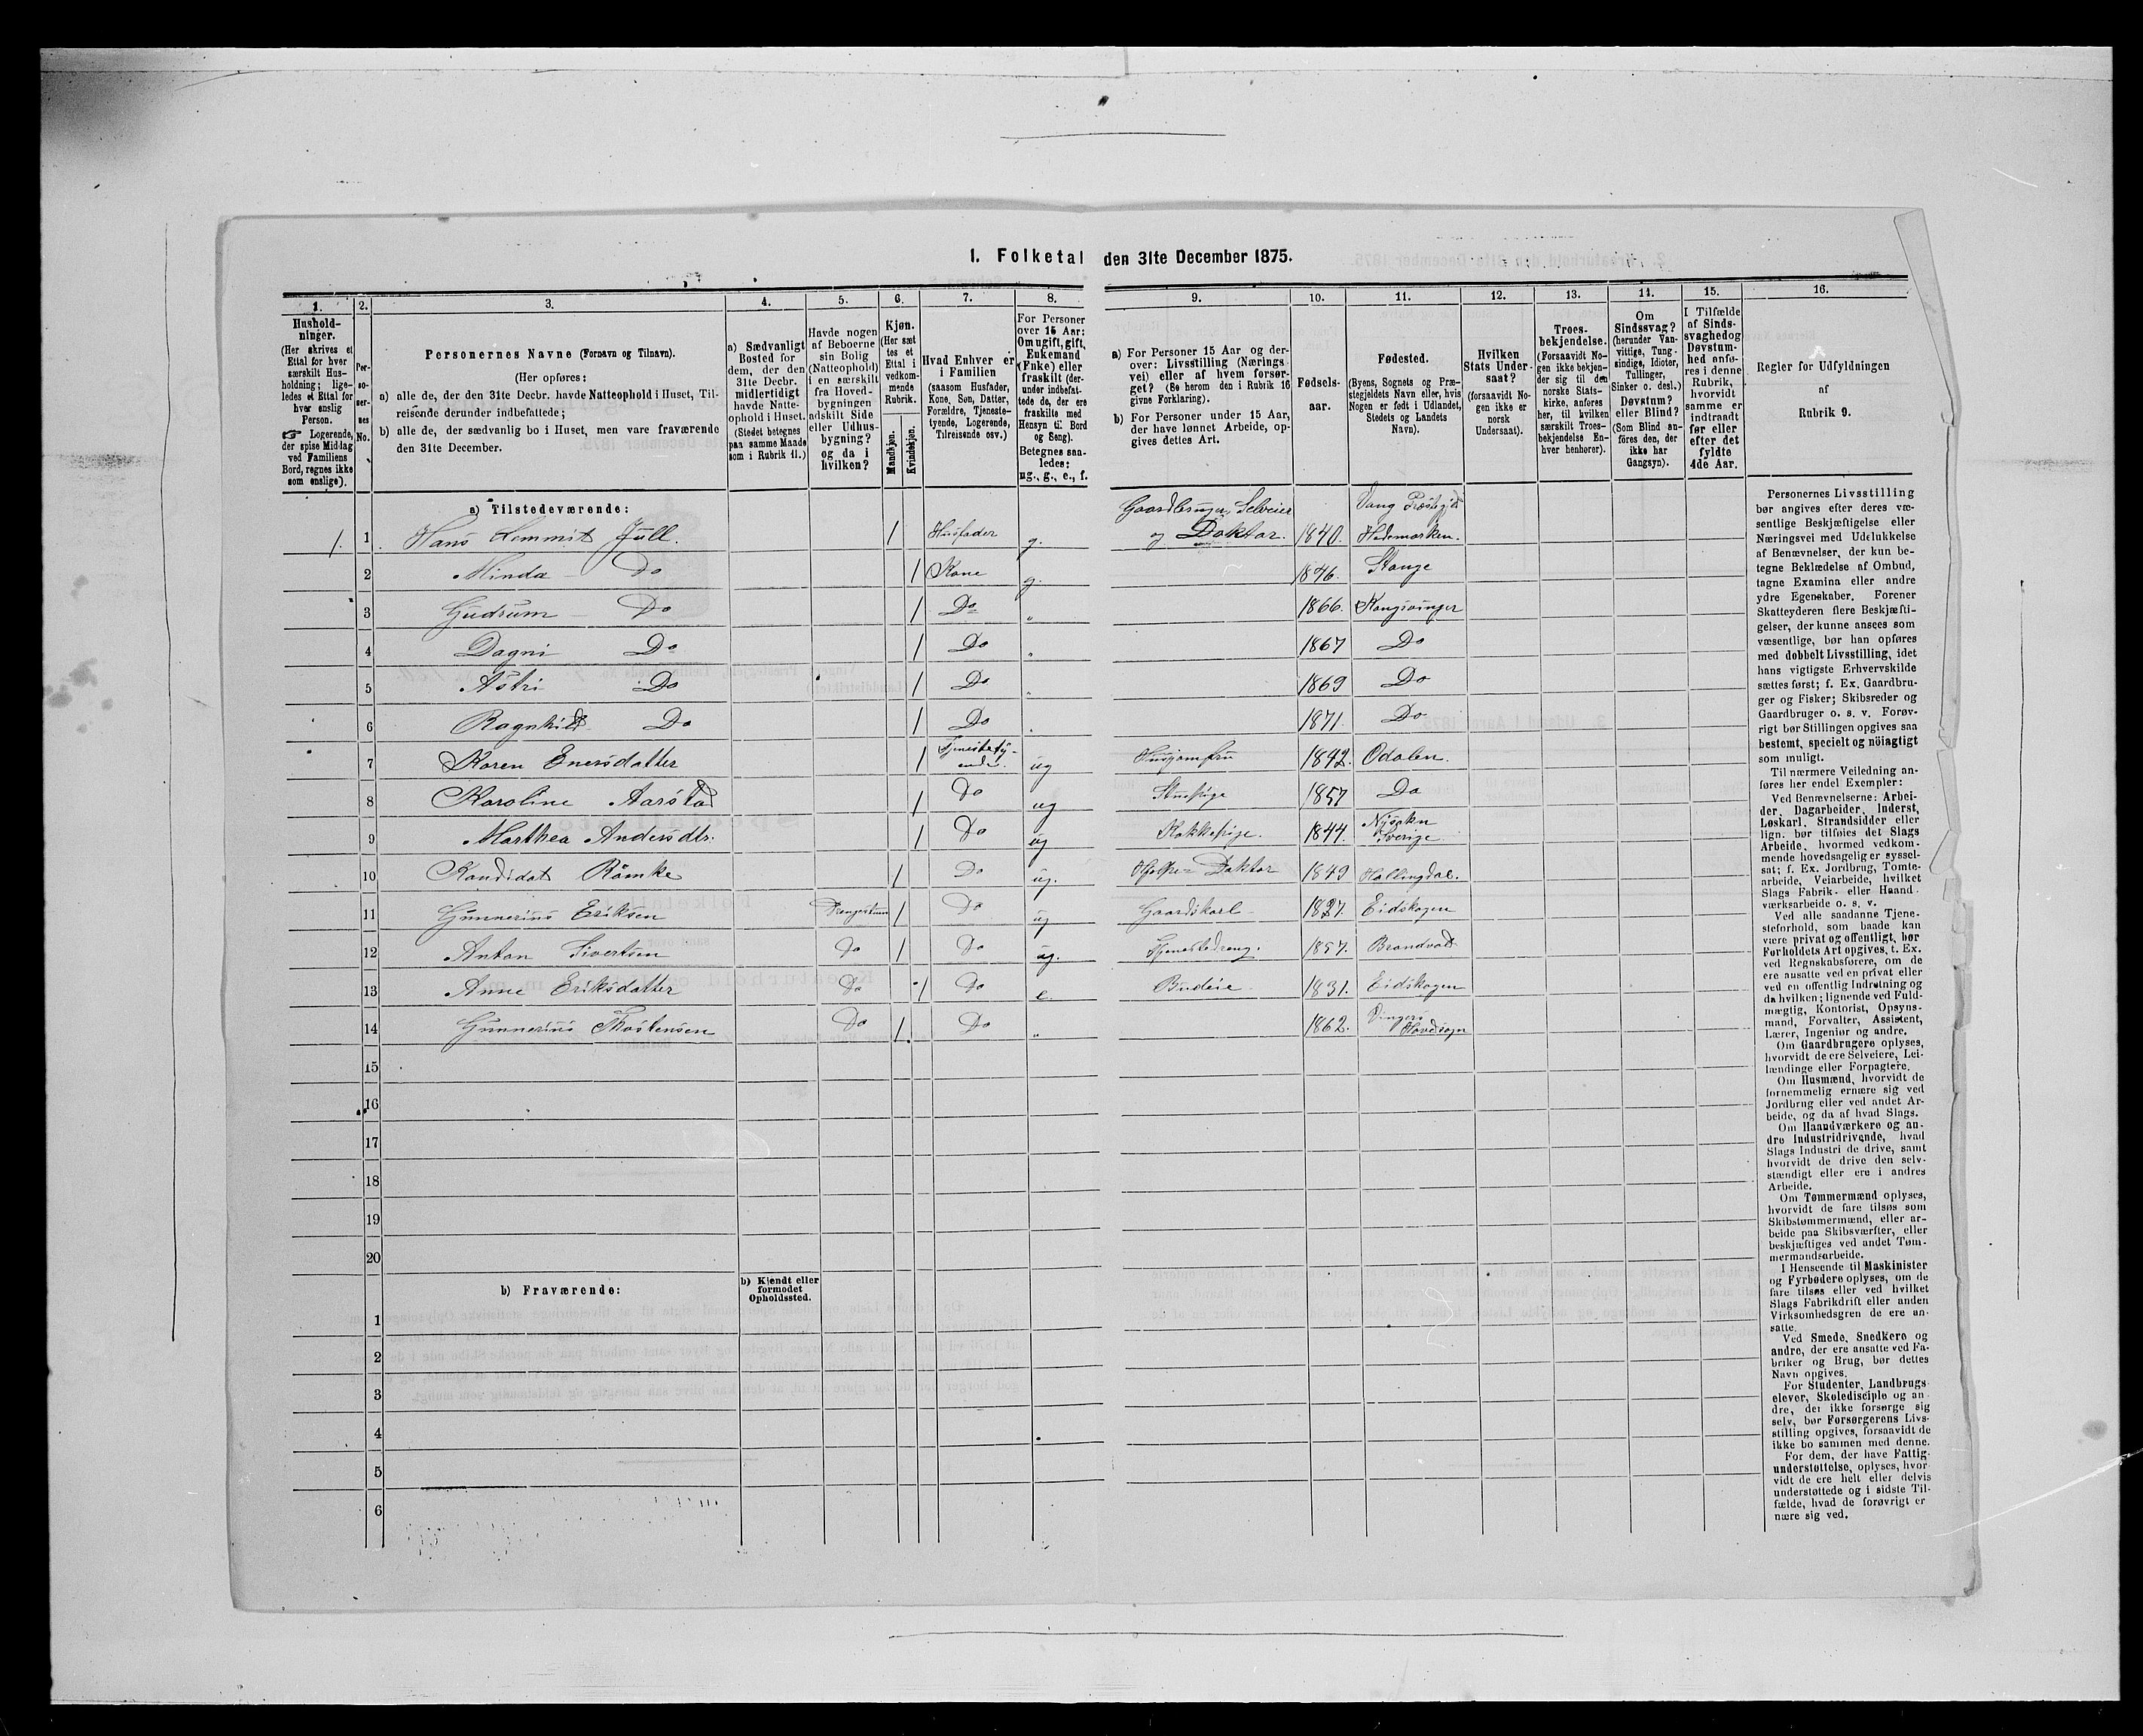 1. Folketal den 31te December 1875.
1.
2.
3.
4.
5.
6.
7.
8.
9.
10.
11.
12.
13.
14.
15.
16.
Hushold-
ninger.
(Her skrives et
Ettal for hver
særskilt Hus-
holdning; lige-
ledes et Ettal for
hver enslig
Person.
☞ Logerende,
der spise Middag
ved Familiens
Bord, regnes ikke
som enslige).
Per-
so-
ner-
nes
No.
Personernes Navne (Fornavn og Tilnavn).
(Her opføres:
a) alle de, der den 31te Decbr. havde Natteophold i Huset, Til-
reisende derunder indbefattede;
b) alle de, der sædvanlig bo i Huset, men vare fraværende
den 31te December.
a) Sædvanligt
Bosted for
dem, der den
31te Decbr.
midlertidigt
havde Natte-
ophold i Huset.
(Stedet betegnes
paa samme Maade
som i Rubrik 11.)
Havde nogen
af Beboerne
sin Bolig
(Natteophold)
i en særskilt
fra Hoved-
bygningen
adskilt Side
eller Udhus-
bygning?
og da i
hvilken?
Kjøn.
(Her sæt
tes et
Ettal i
vedkom-
mende
Rubrik.
Mandkjøn.
Kvindekjøn.
Hvad Enhver er
i Familien
(saasom Husfader,
Kone, Søn, Datter,
Forældre, Tjeneste-
tyende, Logerende,
Tilreisende osv.)
For Personer
over 15 Aar:
Om ugift, gift,
Enkemand
(Enke) eller
fraskilt (der-
under indbefat-
tede de, der ere
fraskilte med
Hensyn til Bord
og Seng).
Betegnes saa-
ledes:
ug., g., e., f.
a) For Personer 15 Aar og der-
over: Livsstilling (Nærings-
vei) eller af hvem forsør-
get? (Se herom den i Rubrik 16
givne Forklaring).
b) For Personer under 15 Aar,
der have lønnet Arbeide, op-
gives dettes Art.
Fødsels-
aar.
Fødested.
(Byens, Sognets og Præ-
stegjeldets Navn eller, hvis
Nogen er født i Udlandet,
Stedets og Landets
Navn).
Hvilken
Stats Under-
saat?
(forsaavidt No-
gen ikke er
norsk
Undersaat).
Troes-
bekjendelse.
(Forsaavidt No-
gen ikke bekjen-
der sig til den
norske Stats-
kirke, anføres
her, til hvilken
særskilt Troes-
bekjendelse En-
hver henhører).
Om
Sindssvag?
(herunder Van-
vittige, Tung-
sindige, Idioter,
Tullinger,
Sinker o. desl.)
Døvstum?
eller Blind?
(Som Blind an-
føres den, der
ikke har
Gangsyn).
I Tilfælde
af Sinds-
svaghed og
Døvstum-
hed anfø-
res i denne
Rubrik,
hvorvidt
samme er
indtraadt
før eller
efter det
fyldte
4de Aar.
Regler for Udfyldningen
af
Rubrik 9.
a) Tilstedeværende:
1. 1 Hans Lemmit Jull. 1 Husfader g. Gaardbruger, Selveier og Doktor. 1840. Vang Hedemarken.
2 Minda Do 1 Kone g. 1846. Stange
3 Gudrum Do 1 Do „ 1866. Kongsvinger
4 Dagni Do 1 Do „ 1867 Do
5 Astri Do 1 Do „ 1869 Do
6 Ragnhild Do 1 Do „ 1871. Do
7 Karen Enersdatter 1 Tjenestetyende. ug Husjomfru 1842. Odalen.
8 Karoline Aarstad 1 Do ug Stuepige 1857 Do
9 Marthea Andersdtr. 1 Do ug Kokkepige. 1844. Sverige.
10 Kandidat Römke 1 Do ug. Doktor 1849 Hallingdal.
11 Gunnerius Eriksen Drengestuen 1 Do ug Gaardskarl 1827. Eidskogen
12 Anton Sivertsen Do 1 Do ug. Tjenestedreng. 1857. Brandvold
13 Anne Eriksdatter Do 1 Do e. Budeie 1831. Eidskogen
14 Gunnerius Thostensen Do 1 Do „ 1862. Vingers Hovedsogn
15
16
17
18
19
20
b) Fraværende:
b) Kjendt eller
formodet
Opholdssted.
1
2
3
4
5
6
Personernes Livsstilling
bør angives efter deres væ-
sentlige Beskjæftigelse eller
Næringsvei med Udelukkelse
af Benævnelser, der kun be-
tegne Beklædelse af Ombud,
tagne Examina eller andre
ydre Egenskaber. Forener
Skatteyderen flere Beskjæfti-
gelser, der kunne ansees som
væsentlige, bør han opføres
med dobbelt Livsstilling, idet
hans vigtigste Erhvervskilde
sættes først; f. Ex. Gaardbru-
ger og Fisker; Skibsreder og
Gaardbruger o. s. v. Forøv-
rigt bør Stillingen opgives saa
bestemt, specielt og nöiagtigt
som muligt.
Til nærmere Veiledning an-
føres her endel Exempler:
Ved Benævnelserne: Arbei-
der, Dagarbeider, Inderst,
Løskarl, Strandsidder eller
lign. bør tilføies det Slags
Arbeide, hvormed vedkom-
mende hovedsagelig er syssel-
sat; f. Ex. Jordbrug, Tomte-
arbeide, Veiarbeide, hvilket
Slags Fabrik- eller Haand-
værksarbeide o. s. v.
Ved alle saadanne Tjene-
steforhold, som baade kan
være privat og offentligt, bør
Forholdets Art opgives, t. Ex.
ved Regnskabsførere, om de
ere ansatte ved en privat eller
ved en offentlig Indretning og
da hvilken; lignende ved Fuld-
mægtig, Kontorist, Opsyns-
mand, Forvalter, Assistent,
Lærer, Ingeniør og andre.
Om Gaardbrugere oplyses,
hvorvidt de ere Selveiere, Lei-
lændinge eller Forpagtere.
Om Husmænd, hvorvidt de
fornemmelig ernære sig ved
Jordbrug eller ved andet Ar-
beide, og da af hvad Slags.
Om Haandværkere og an-
dre Industridrivende, hvad
Slags Industri de drive, samt
hvorvidt de drive den selv-
stændigt eller ere i andres
Arbeide.
Om Tømmermænd oplyses,
hvorvidt de fare tilsøs som
Skibstømmermænd, eller ar-
beide paa Skibsværfter, eller
beskjæftiges ved andet Tøm-
mermandsarbeide.
I Henseende til Maskinister
og Fyrbødere oplyses, om de
fare tilsøs eller ved hvilket
Slags Fabrikdrift eller anden
Virksomhedsgren de ere an-
satte.
Ved Smede, Snedkere og
andre, der ere ansatte ved Fa-
briker og Brug, bør dettes
Navn opgives.
For Studenter, Landbrugs-
elever, Skoledisciple og an-
dre, der ikke forsørge sig
selv, bør Forsørgerens Livs-
stilling opgives, forsaavidt de
ikke bo sammen med denne.
For dem, der have Fattig-
understøttelse, oplyses, hvor-
vidt de ere helt eller delvis
understøttede og i sidste Til-
fælde, hvad de forøvrigt er
nære sig ved.